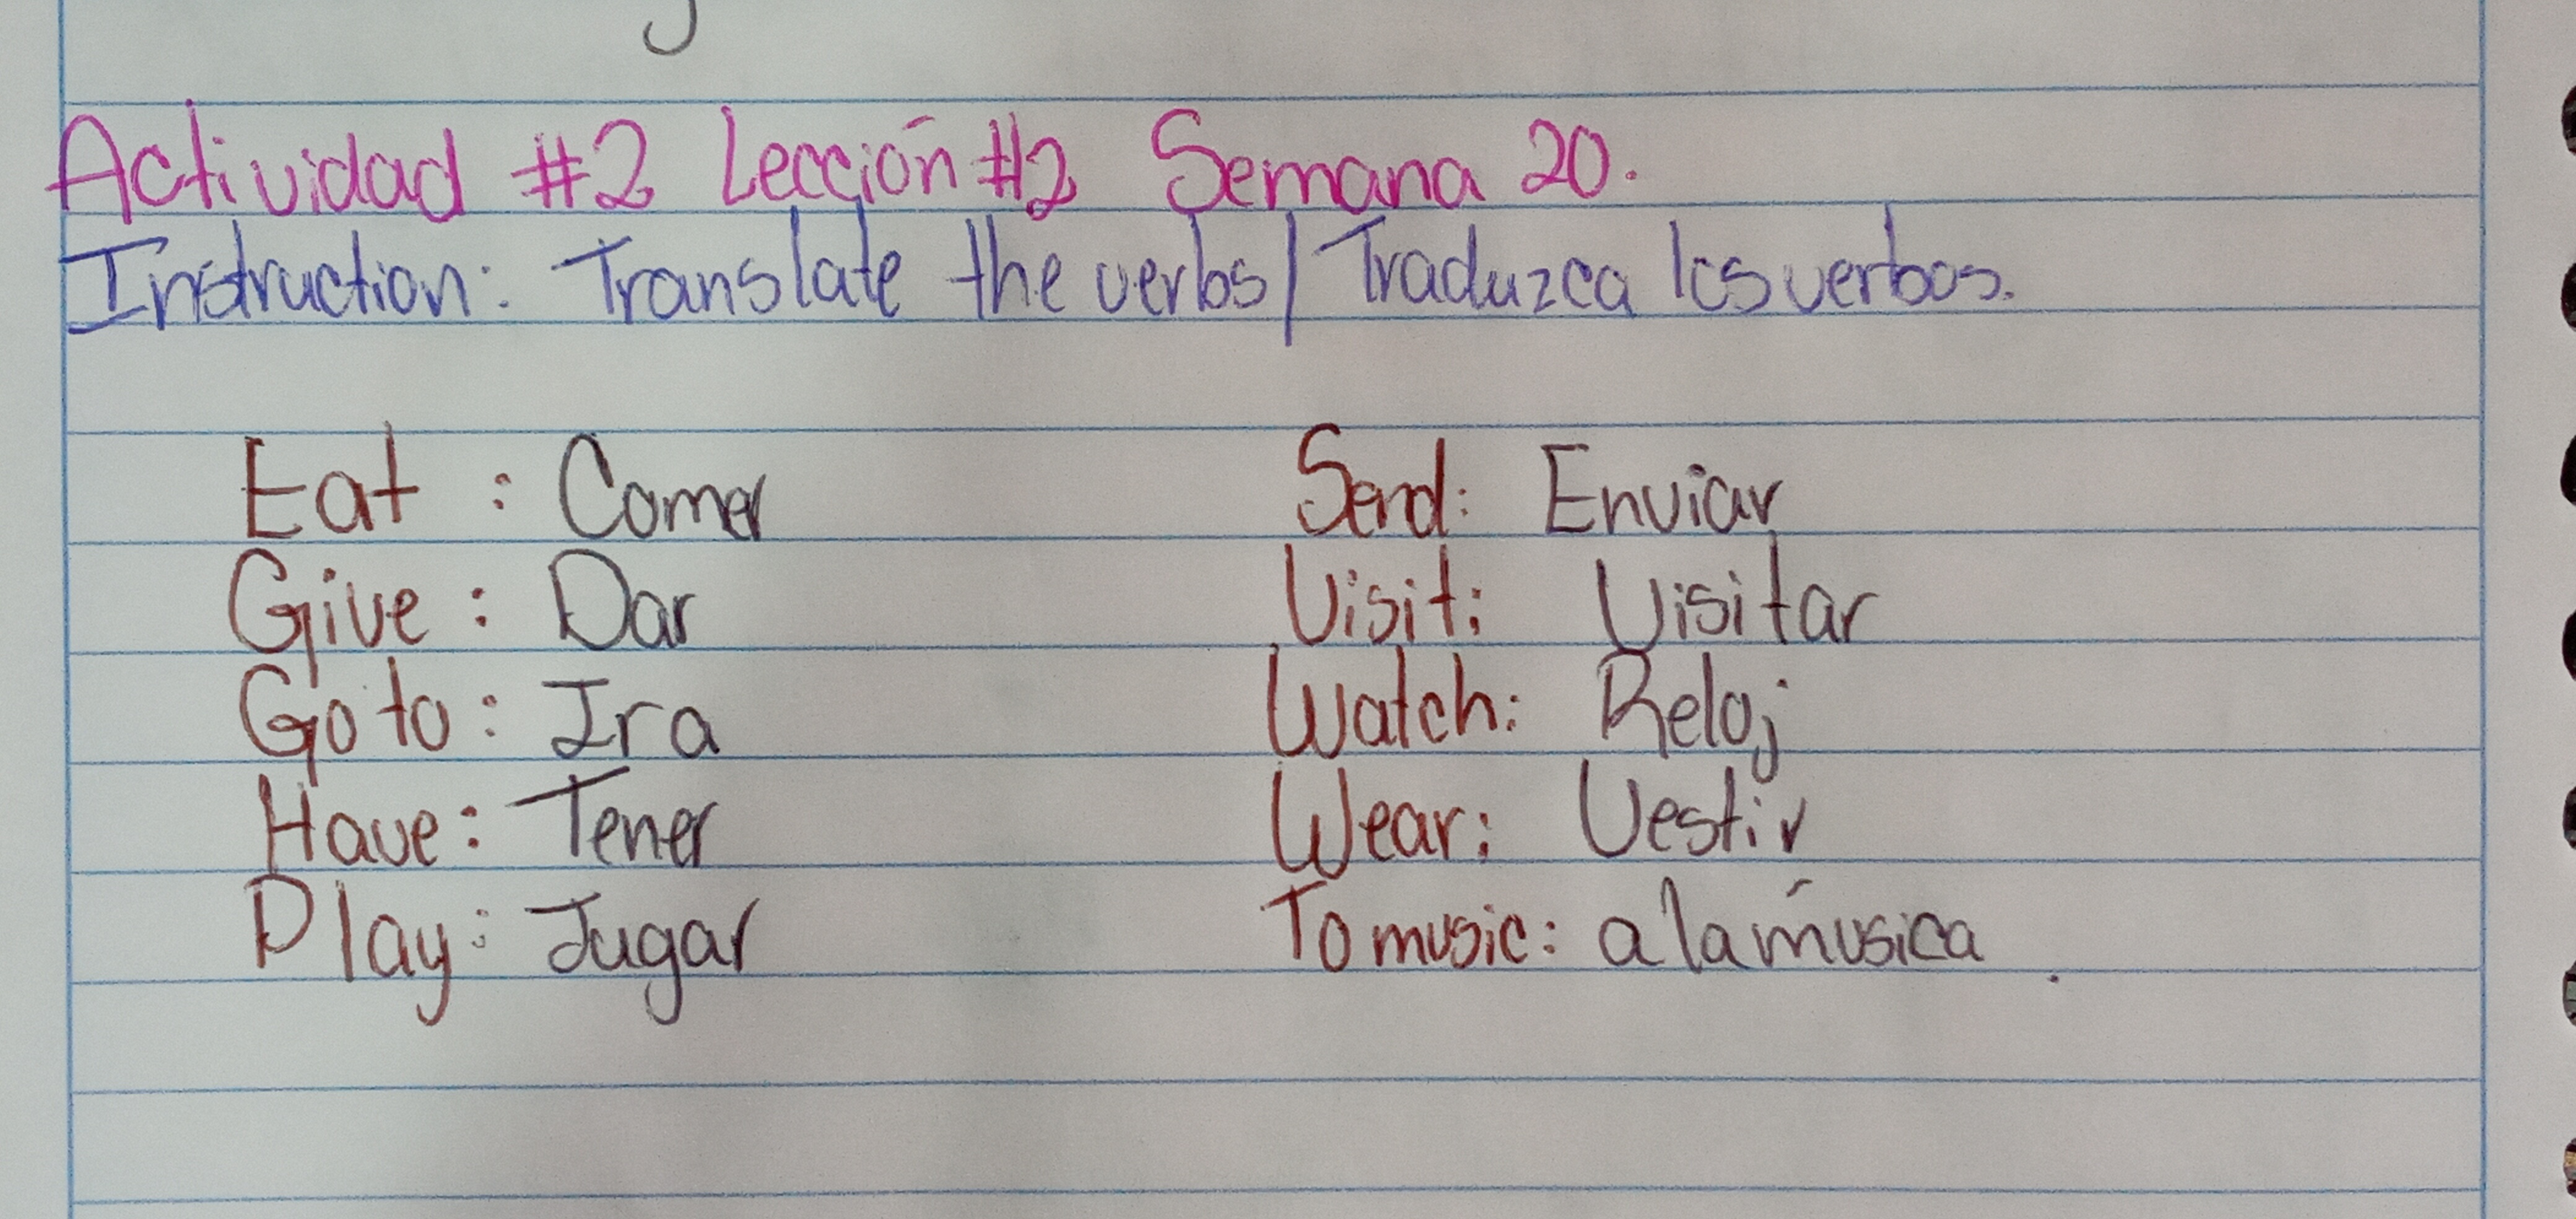 Actividad #2 Lección #2 Semana 20.
Instruction: Translate the verbs / Traduzca los verbos.
Eat : Comer
Give : Dar
Go to : Ir a
Have : Tener
Play : Jugar
Send: Enviar
Visit: Visitar
Watch: Reloj
Wear: Vestir
To music: a la música.